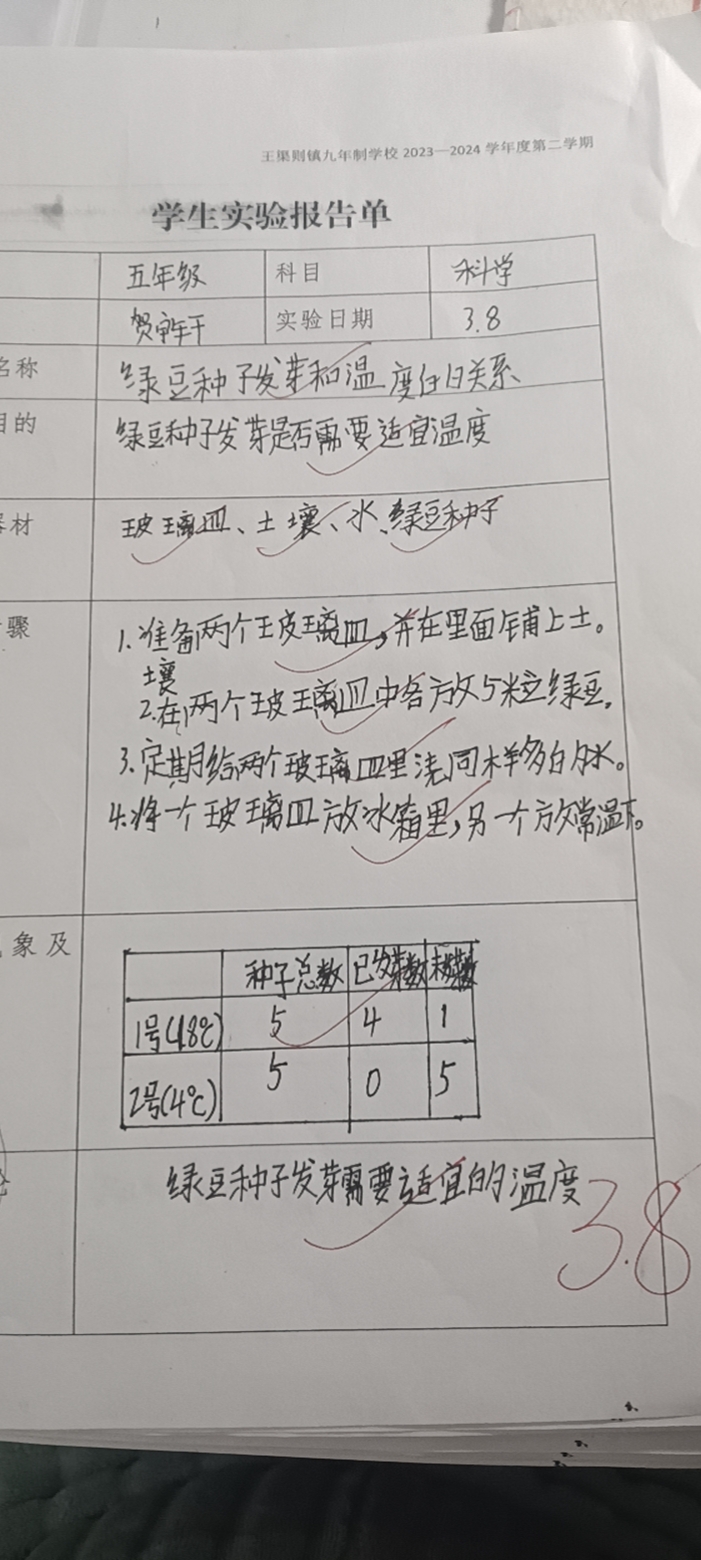 王渠则镇九年制学校 2023—2024 学年度第二学期
学生实验报告单
五年级 科目 科学
实验日期 3.8
名称 绿豆种子发芽和温度的关系
目的 绿豆种子发芽是否需要适宜温度
器材 玻璃皿、土壤、水、绿豆种子
骤 1.准备两个玻璃皿,并在里面铺上土。
壤
2.在两个玻璃皿中各放5粒绿豆。
3.定期给两个玻璃皿里浇同样多的水。
4.将一个玻璃皿放冰箱里,另一个放常温下。
象及
种子总数 已发芽数 未发芽数
1号(18℃) 5 4 1
2号(4℃) 5 0 5
绿豆种子发芽需要适宜的温度
3.8